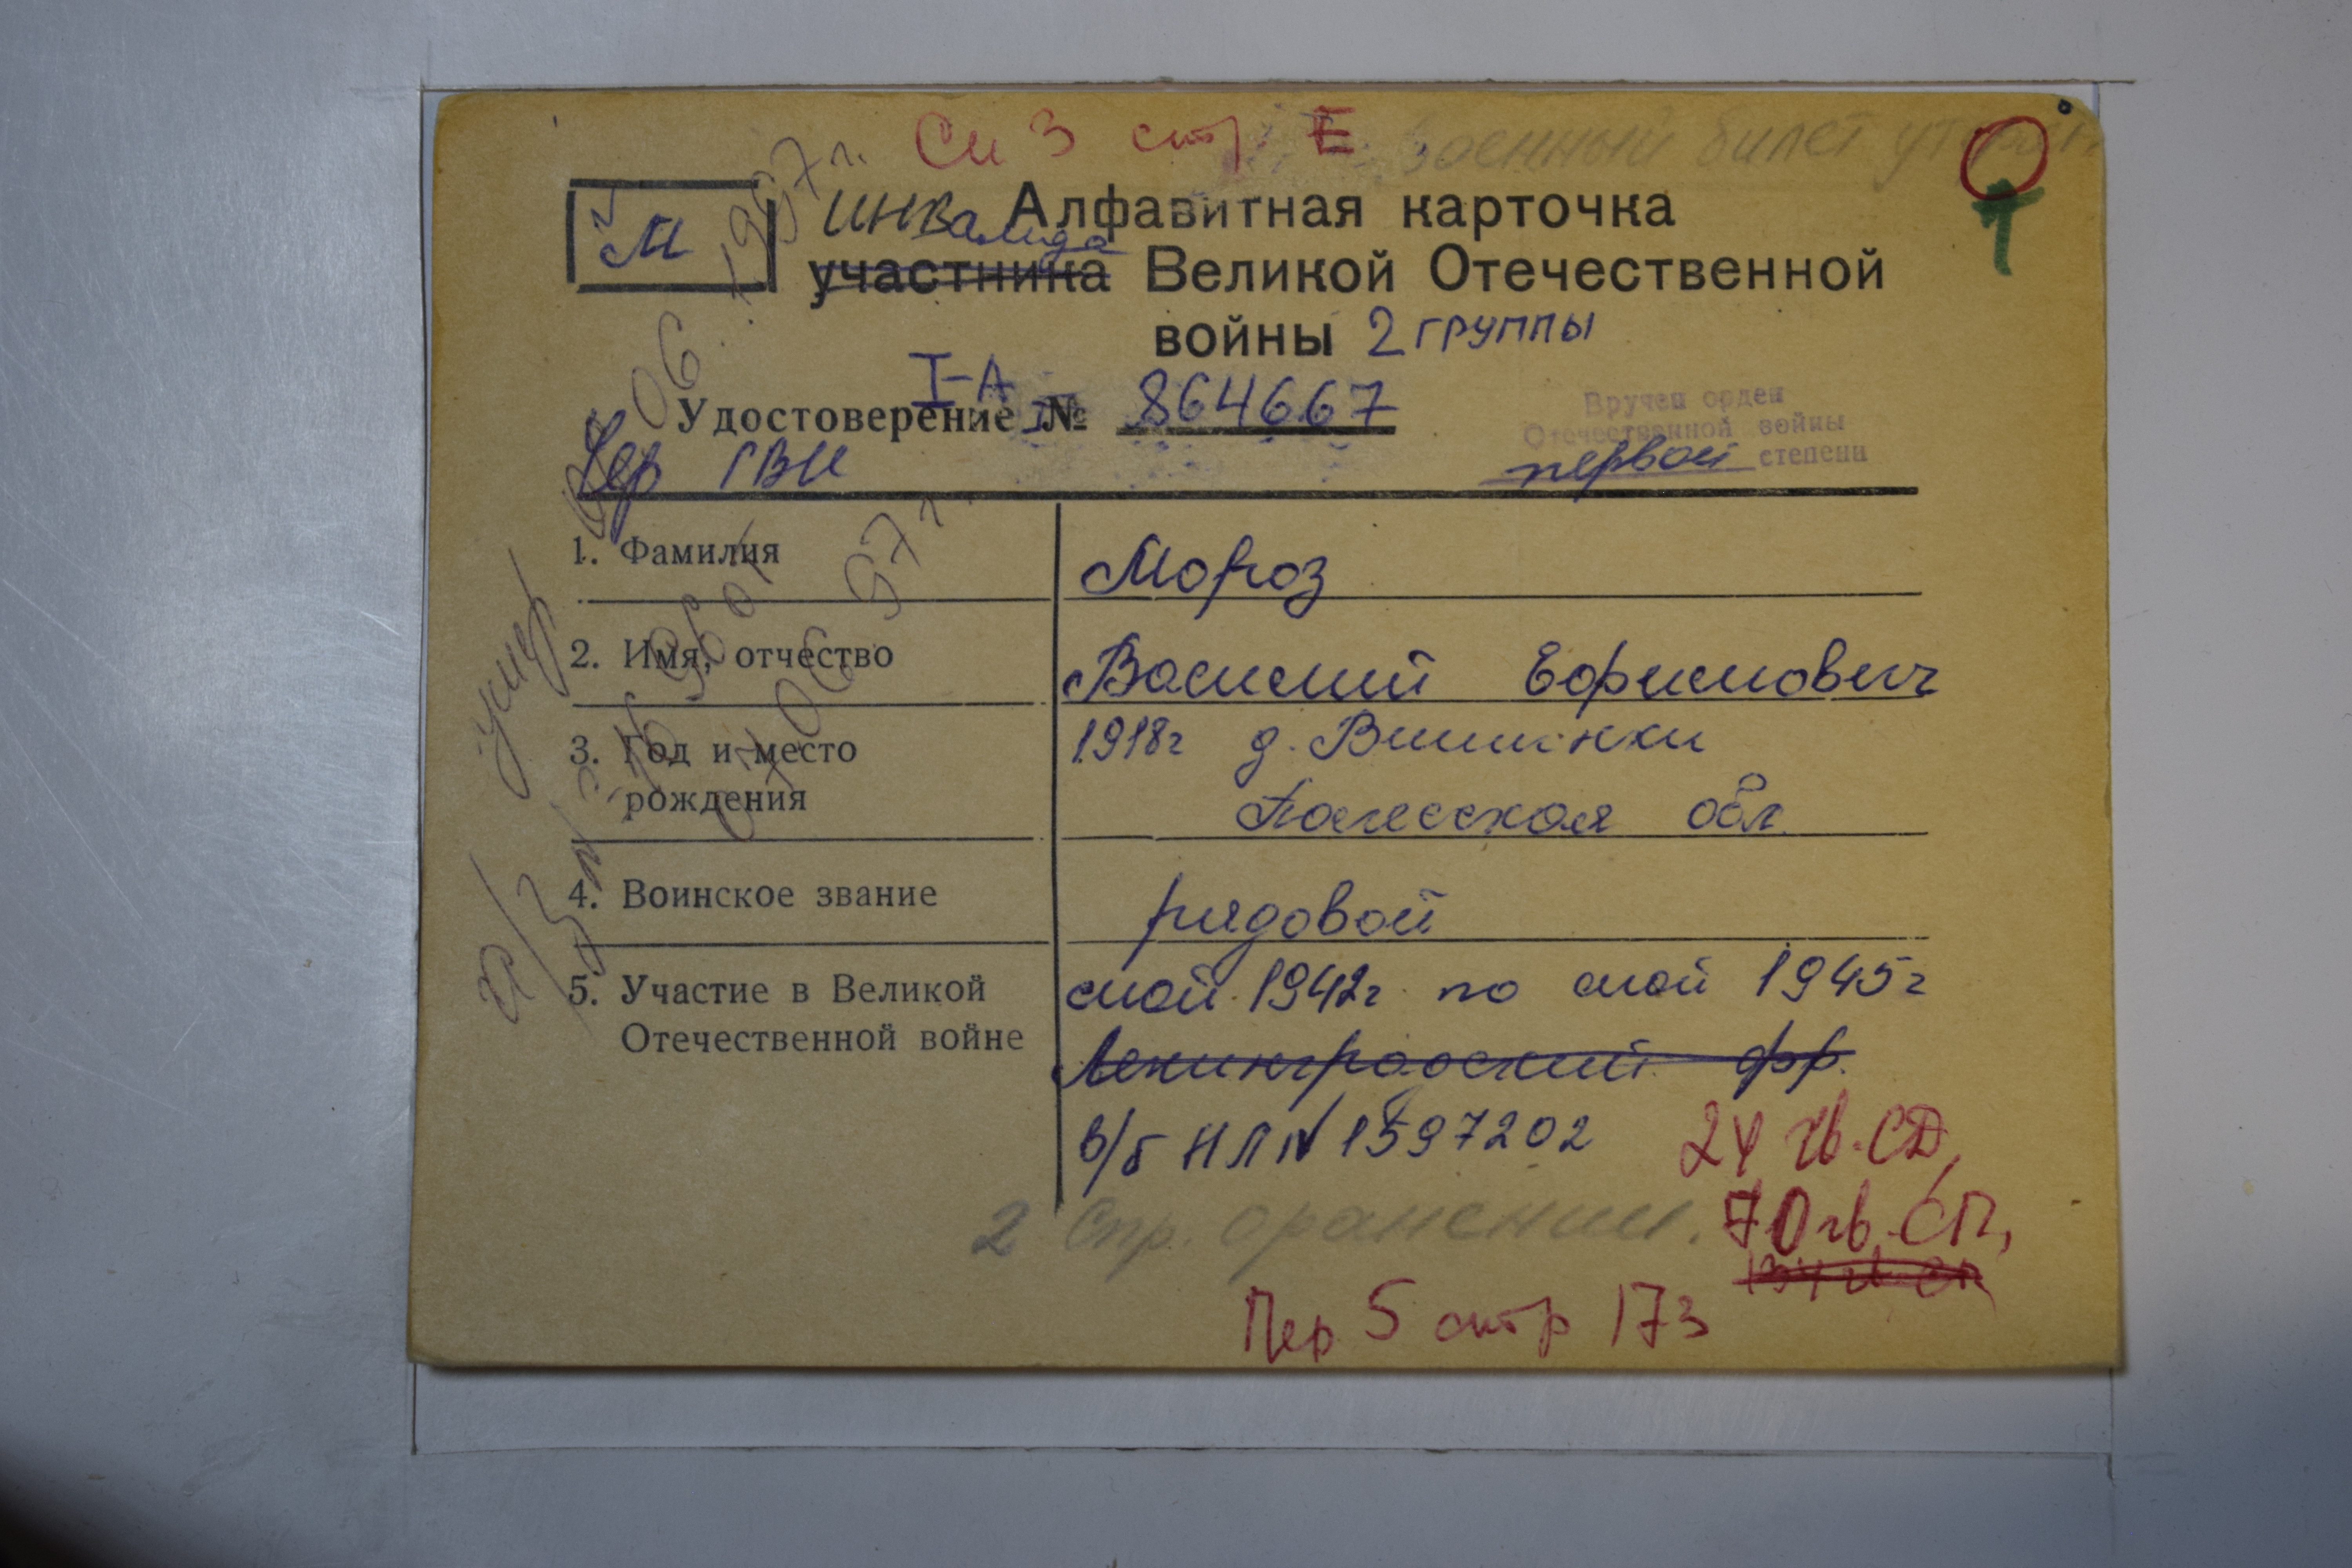 См 3 стр. Е Военный билет утрачен
М
инвалида Алфавитная карточка
участника Великой Отечественной
войны 2 группы
I-А
Удостоверение № 864667
Вручен орден
Отечественной войны
первой степени
Чер ГВК
1. Фамилия Мороз
2. Имя, отчество Василий Ефимович
3. Год и место 1918г д. Вишенки
рождения Полесская обл.
4. Воинское звание рядовой
5. Участие в Великой май 1942г по май 1945г
Отечественной войне Ленинградский фр.
в/б НЛ № 1597202 24 гв. СД,
2 Спр. оранении. 70 гв. СП,
134 гв СП
Пер 5 стр 173
умер
а/з № 396 от
06.1997г.
06 97г.